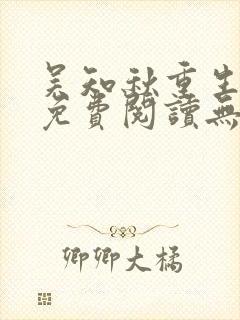 吴知秋重生
免費閱讀無
卿卿大橘